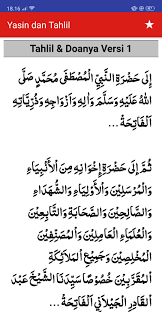 18.16
Yasin dan Tahlil
Tahlil & Doanya Versi 1
إِلَى حَضْرَةِ النَّبِيِّ الْمُصْطَفَى مُحَمَّدٍ صَلَّى
اللهُ عَلَيْهِ وَسَلَّمَ وَاٰلِهِ وَاَزْوَاجِهِ وَذُرِّيَّاتِهِ
اَلْفَاتِحَةُ...
ثُمَّ إِلَى حَضْرَةِ إِخْوَانِهِ مِنَ الْأَنْبِيَاءِ
وَالْمُرْسَلِيْنَ وَالْأَوْلِيَاءِ وَالشُّهَدَاءِ
وَالصَّالِحِيْنَ وَالصَّحَابَةِ وَالتَّابِعِيْنَ
وَالْعُلَمَاءِ الْعَامِلِيْنَ وَالْمُصَنِّفِيْنَ
الْمُخْلِصِيْنَ وَجَمِيْعِ الْمَلَائِكَةِ
الْمُقَرَّبِيْنَ خُصُوْصًا سَيِّدِنَا الشَّيْخِ عَبْدِ
الْقَادِرِ الْجَيْلَانِي اَلْفَاتِحَةُ...